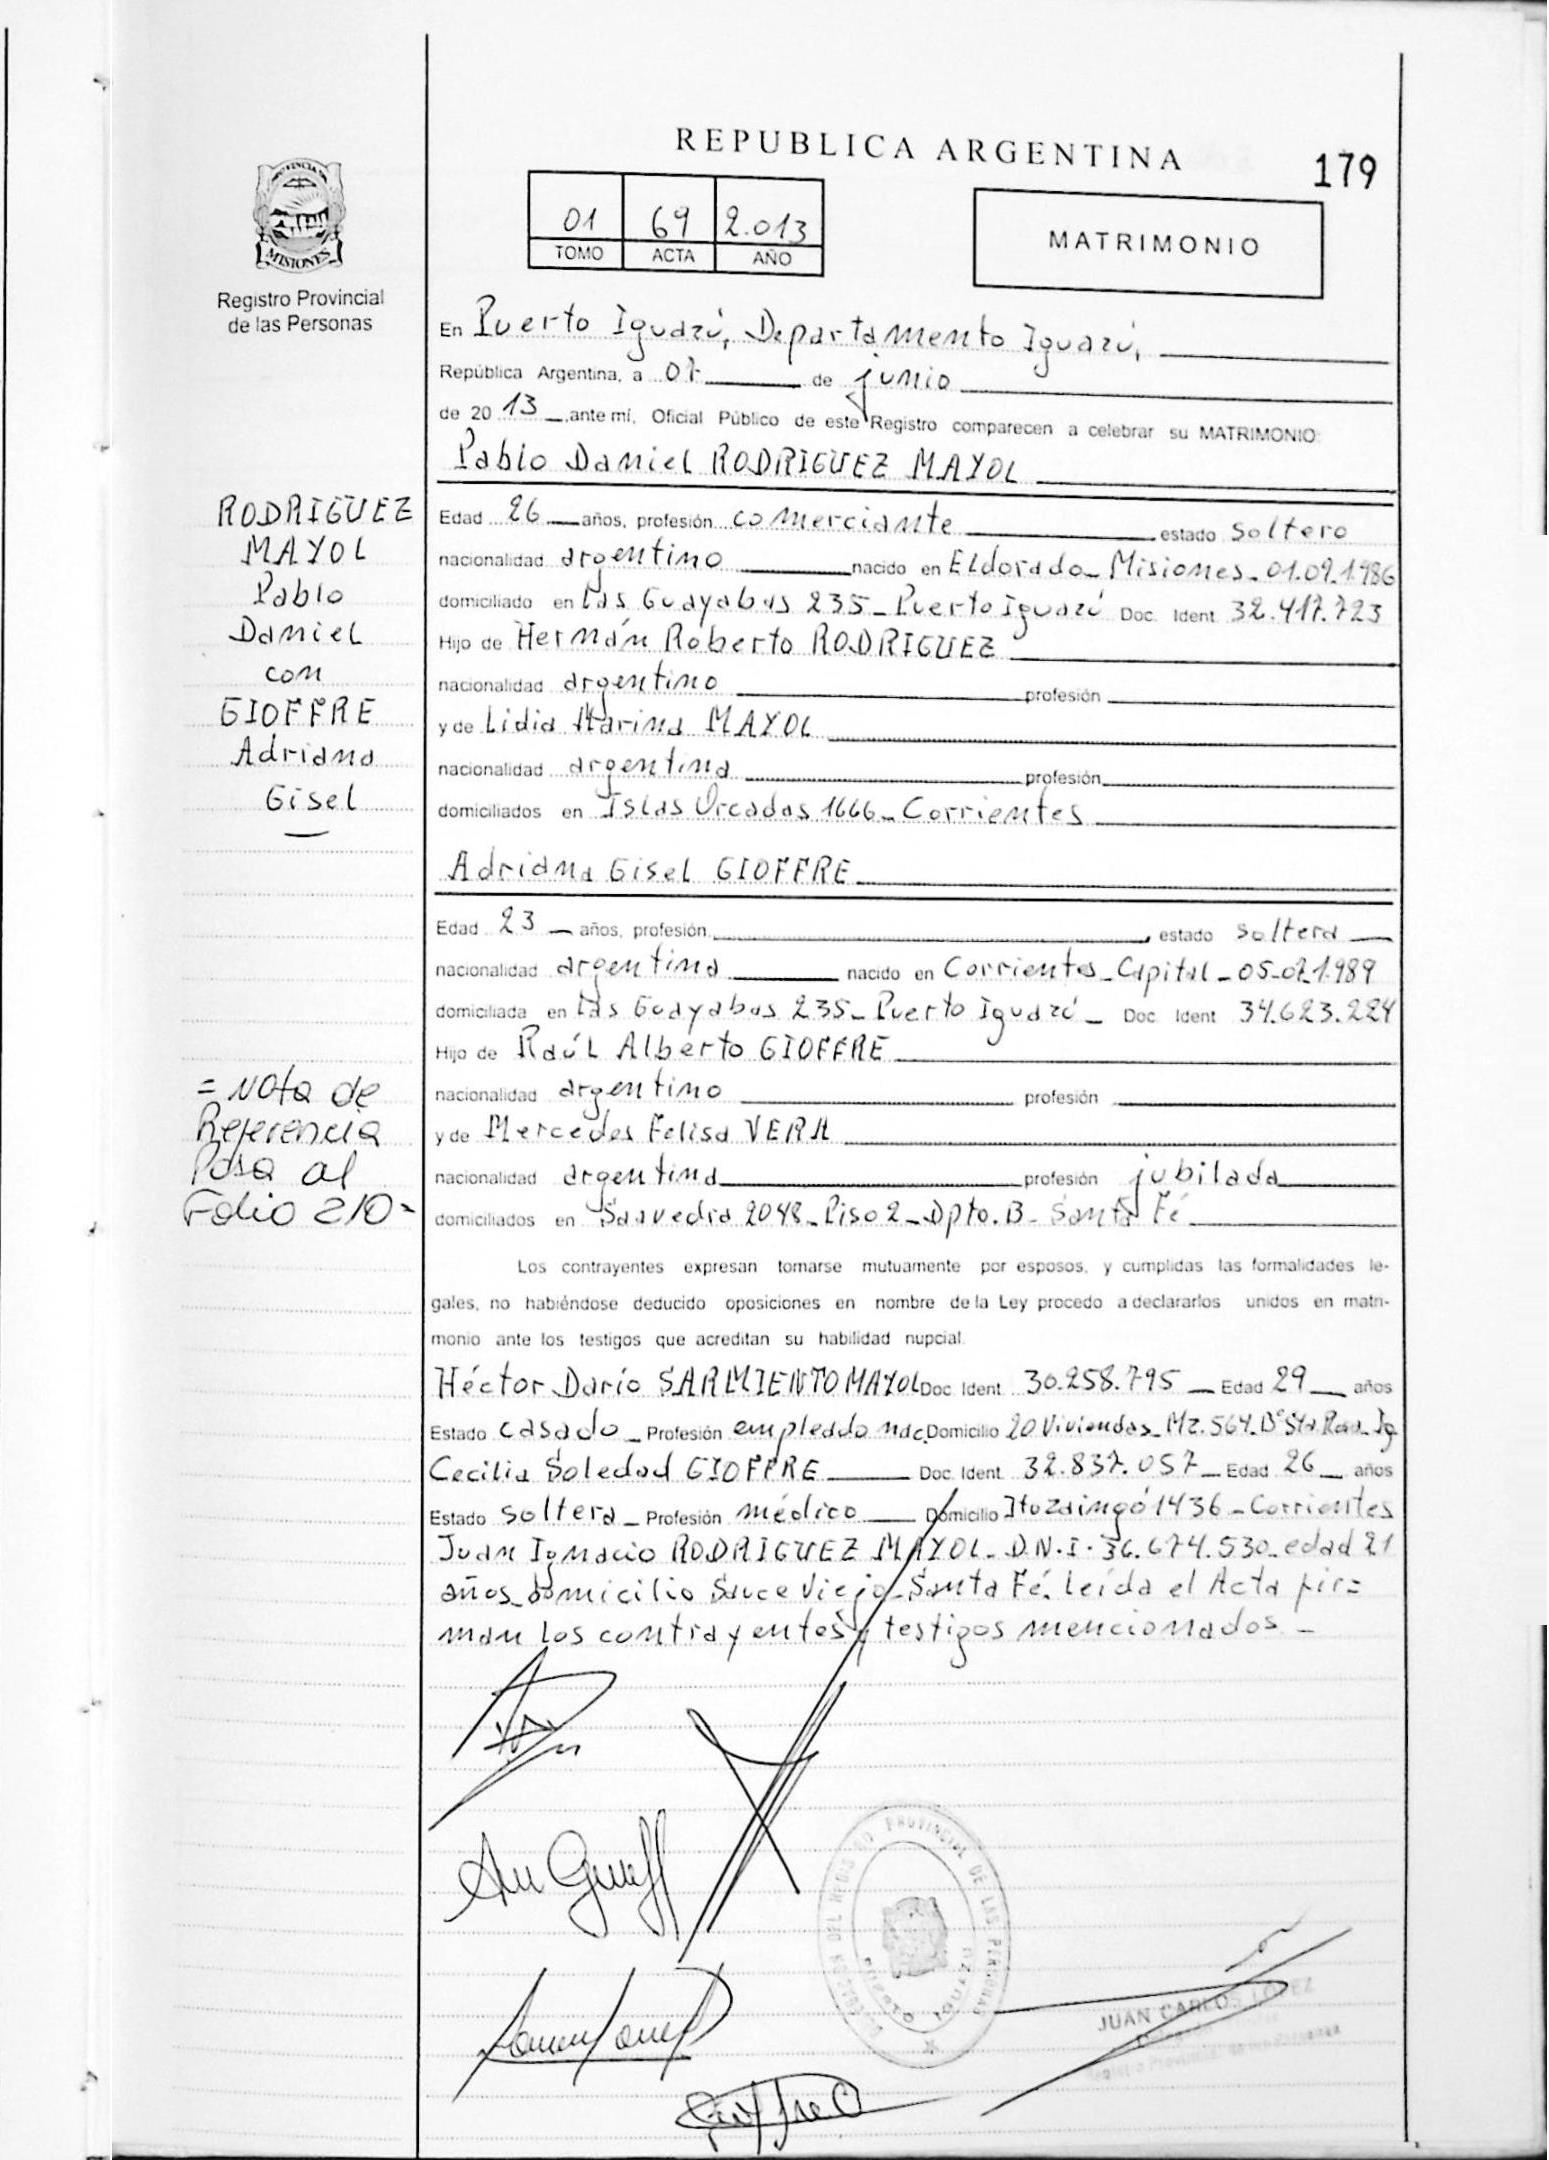 REPUBLICA ARGENTINA
179
01 69 2.013
TOMO ACTA AÑO
MATRIMONIO
PROVINCIA
MISIONES
Registro Provincial
de las Personas
En Puerto Iguazú, Departamento Iguazú,
República Argentina, a 07 de junio
de 20 13 ante mí, Oficial Público de este Registro comparecen a celebrar su MATRIMONIO:
Pablo Daniel RODRIGUEZ MAYOL
Edad 26 años, profesión comerciante estado soltero
nacionalidad argentino nacido en Eldorado_ Misiones_ 01.09.1986
domiciliado en Las Guayabas 235_ Puerto Iguazú Doc. Ident. 32.417.723
Hijo de Hernán Roberto RODRIGUEZ
nacionalidad argentino profesión
y de Lidia Marina MAYOL
nacionalidad argentina profesión
domiciliados en Islas Orcadas 1666_ Corrientes
RODRIGUEZ
MAYOL
Pablo
Daniel
con
GIOFFRE
Adriana
Gisel
Adriana Gisel GIOFFRE
Edad 23 años, profesión estado soltera
nacionalidad argentina nacido en Corrientes_Capital_05-07.1989
domiciliada en Las Guayabas 235_ Puerto Iguazú_ Doc. Ident. 34.623.224
Hijo de Raúl Alberto GIOFFRE
nacionalidad argentino profesión
y de Mercedes Felisa VERA
nacionalidad argentina profesión jubilada
domiciliados en Saavedra 2048_Piso 2_Dpto. B_ Santa Fé
= Nota de
Referencia
Pasa al
Folio 210=
Los contrayentes expresan tomarse mutuamente por esposos, y cumplidas las formalidades le-
gales, no habiéndose deducido oposiciones en nombre de la Ley procedo a declararlos unidos en matri-
monio ante los testigos que acreditan su habilidad nupcial.
Héctor Darío SARMIENTO MAYOL Doc. Ident. 30.258.795 _ Edad 29 años
Estado casado _ Profesión empleado nac. Domicilio 20 Viviendas_ Mz. 564_ B° Sta Rosa_ Ig
Cecilia Soledad GIOFFRE Doc. Ident. 32.837.057 _ Edad 26 años
Estado soltera _ Profesión médico Domicilio Ituzaingó 1436 _ Corrientes
Juan Ignacio RODRIGUEZ MAYOL_ D.N.I. 36.674.530_ edad 21
años_ domicilio Sauce Viejo_ Santa Fé. Leída el Acta fir=
man los contrayentes y testigos mencionados _
DEL REGISTRO PROVINCIAL DE LAS PERSONAS
PUERTO IGUAZU
JUAN CARLOS LOPEZ
Registro Provincial de las Personas